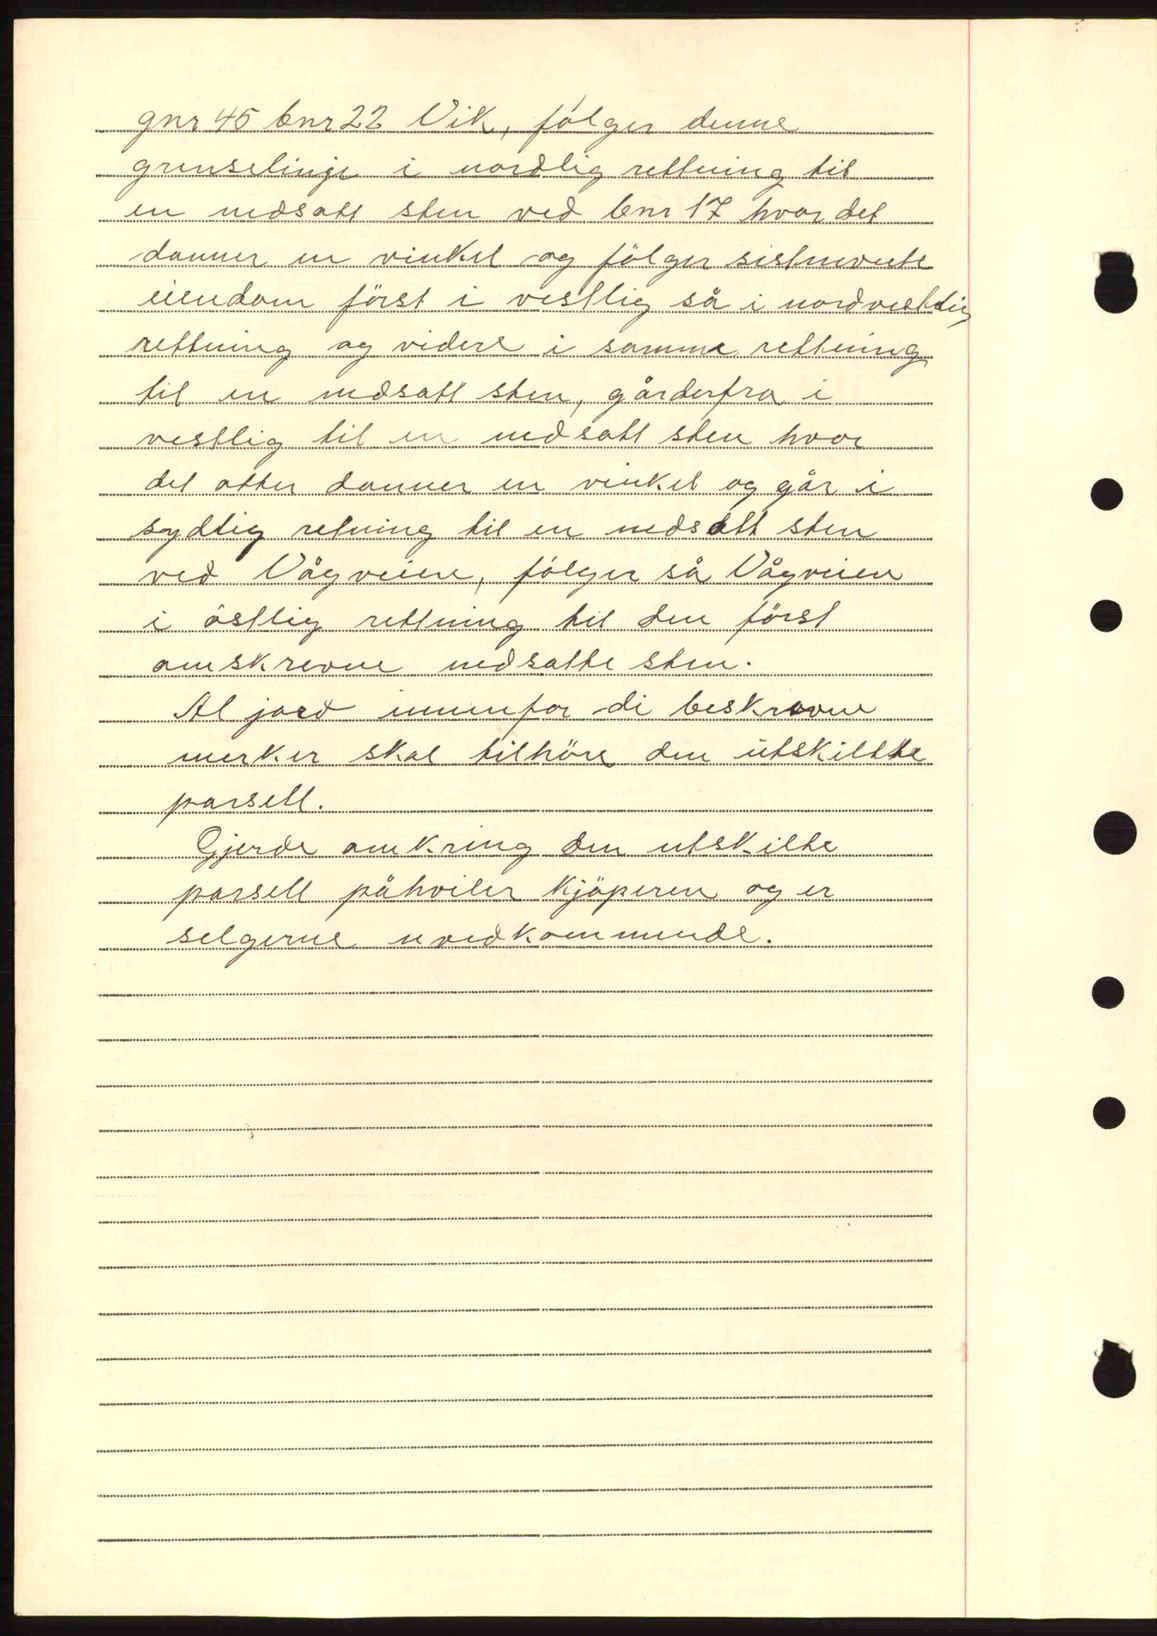 gnr 45 bnr 22 Vik, følger denne
grenselinje i nordlig rettning til
en nedsatt sten ved bnr 17 hvor det
danner en vinkel og följer sistnevnte
eiendom först i vestlig så i nordvestlig
rettning og videre i samme rettning
til en nedsatt sten, går derfra i
vestlig til en nedsatt sten hvor
det atter danner en vinkel og går i
sydlig retning til en nedsatt sten
ved Vågveien, fölger så Vågveien
i östlig rettning til den först
omskrevne nedsatte sten.
Al jord innenfor di beskrevne
merker skal tilhöre den utskillte
parsell.
Gjerde omkring den utskilte
parsell påhviler kjöperen og er
selgerne uvedkommende.